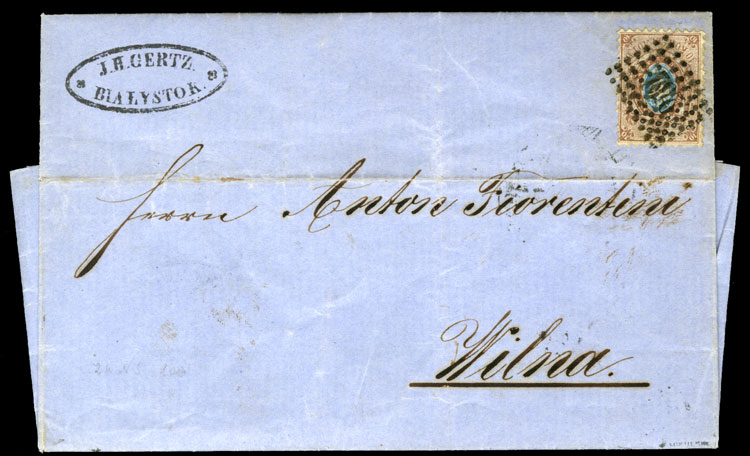 J.H.GERTZ.
BIALYSTOK.
Herrn Anton Fiorentini
Wilna.